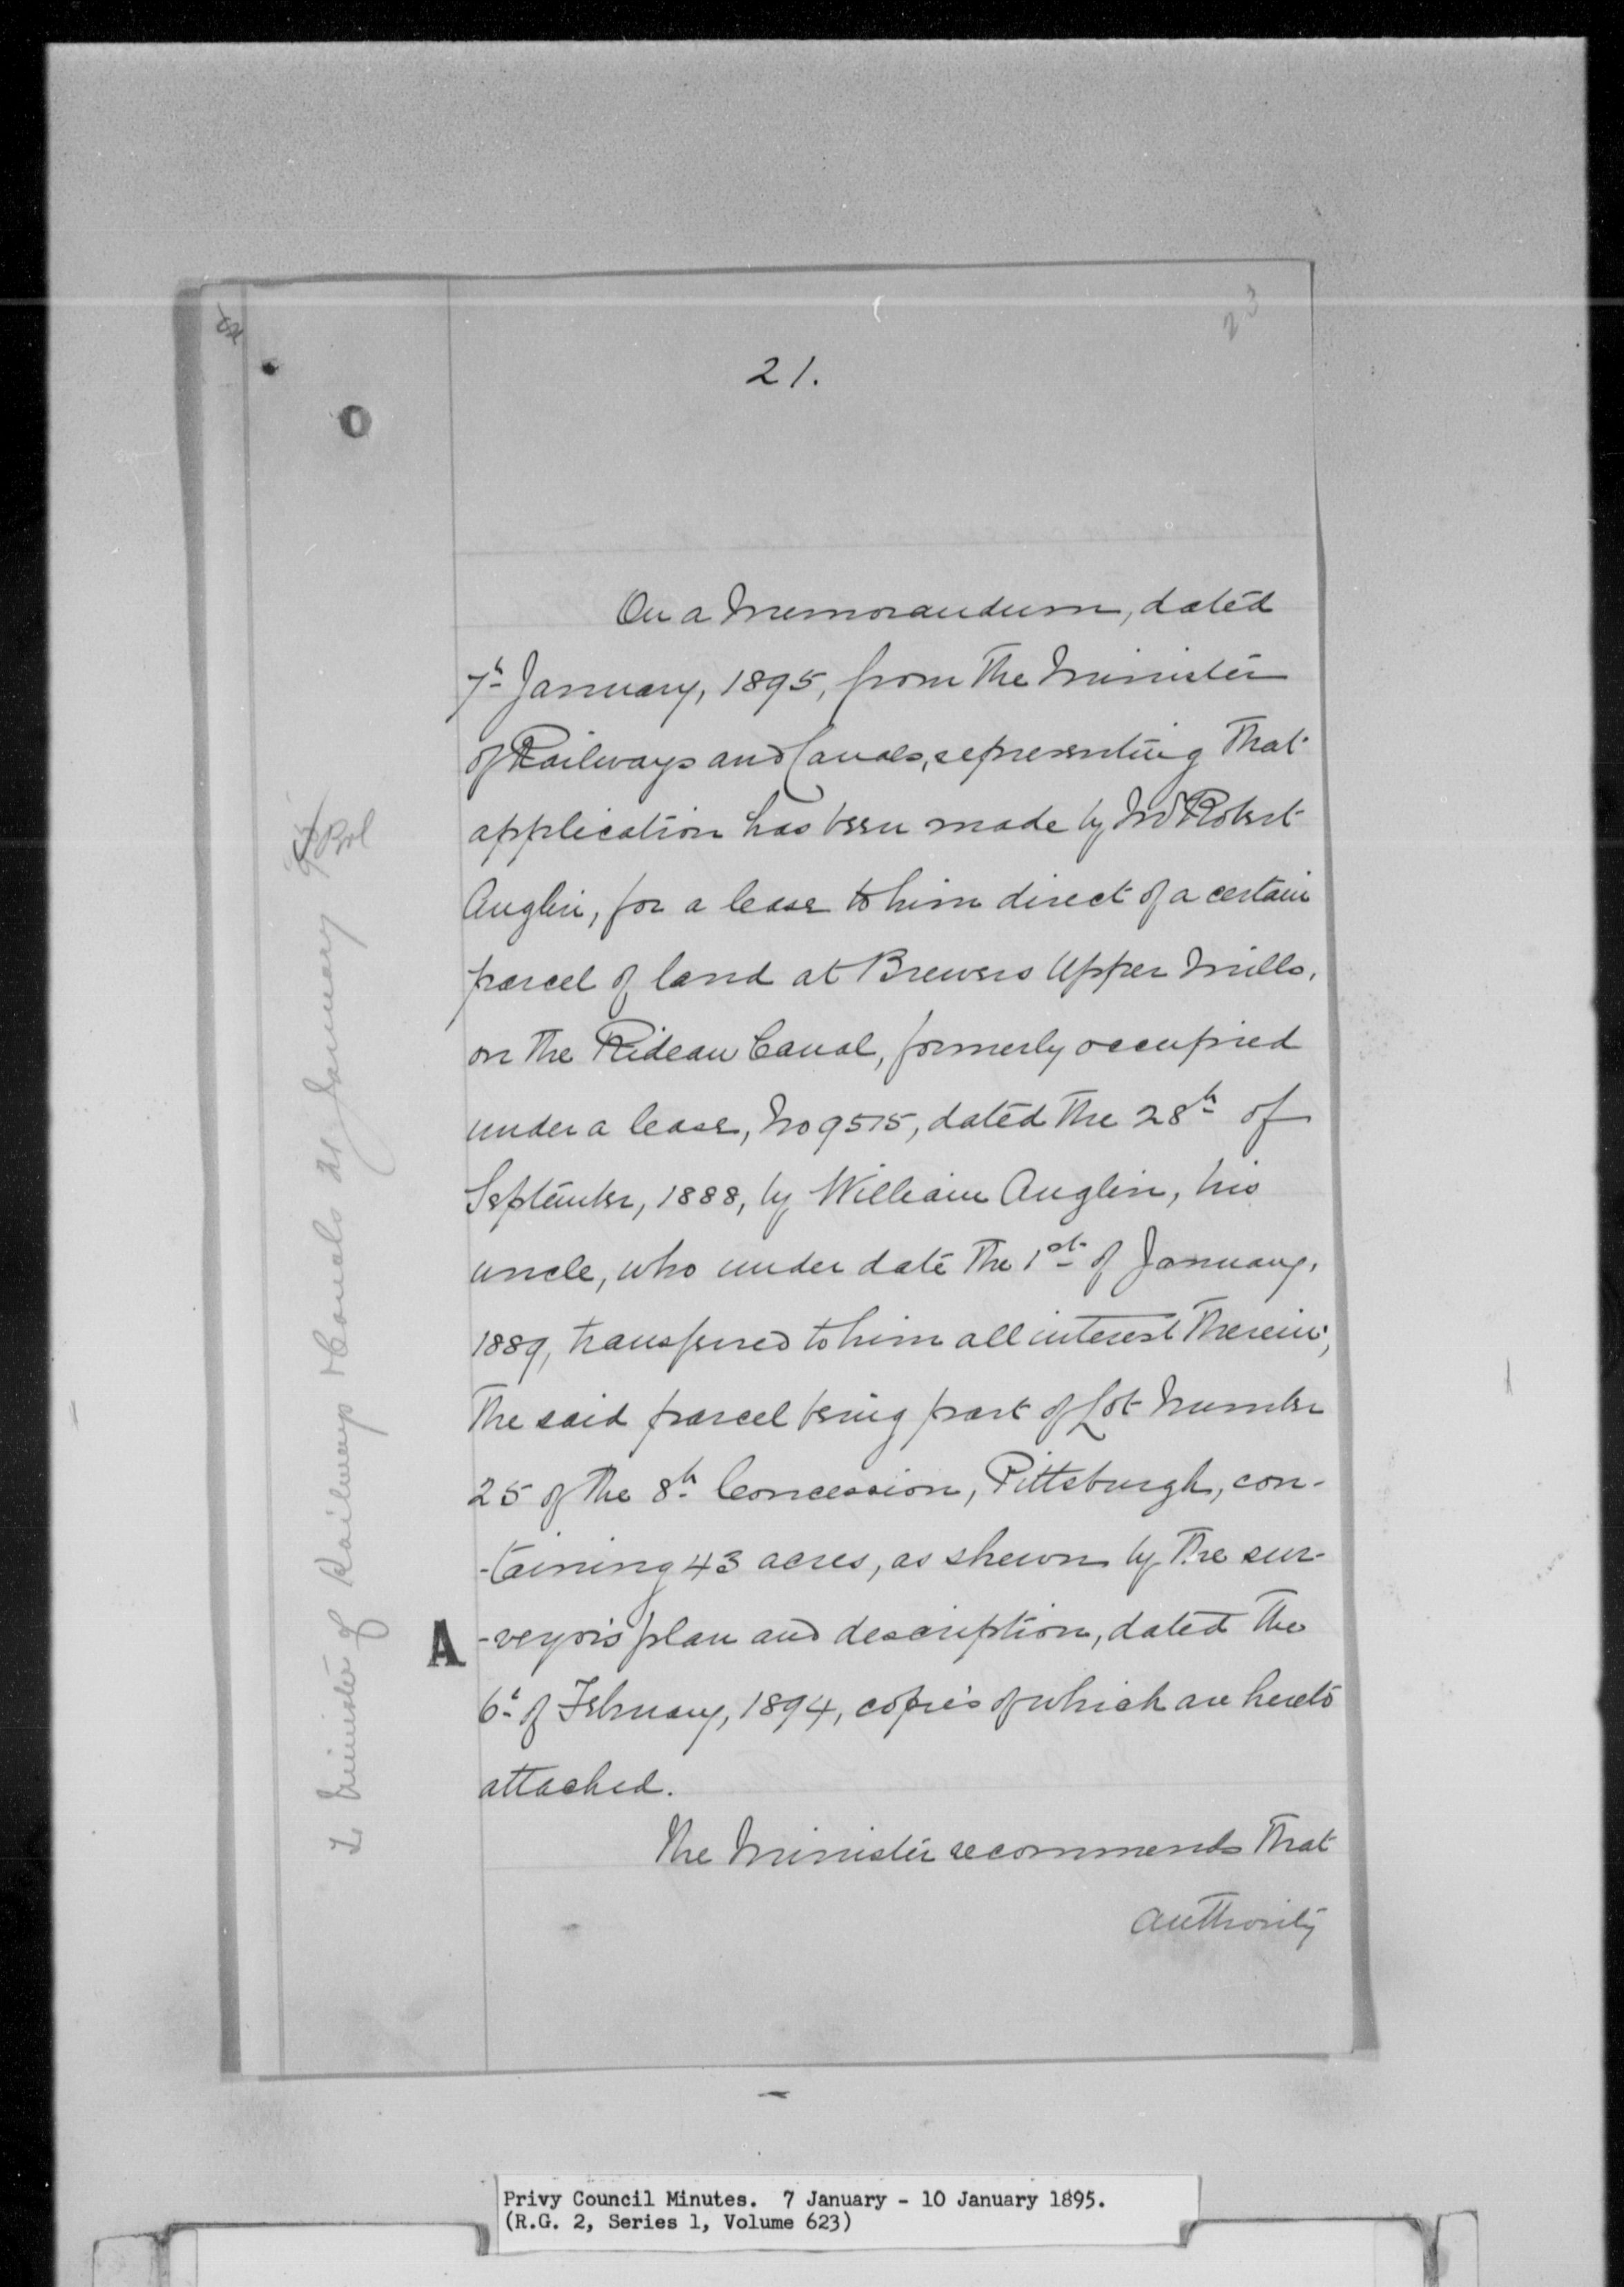 23
21.
On a Memorandum, dated
7th January, 1895, from the Minister
of Railways and Canals, representing that
application has been made by Mr Robert
Anglin, for a lease to him direct of a certain
parcel of land at Brewers Upper Mills,
on the Rideau Canal, formerly occupied
under a lease, No 9515, dated the 28th of
September, 1888, by William Anglin, his
uncle, who under date the 1st of January,
1889, transferred to him all interest therein;
the said parcel being part of Lot Number
25 of the 8th Concession, Pittsburgh, con-
-taining 43 acres, as shewn by the sur-
A -veyor's plan and description, dated the
6th of February, 1894, copies of which are hereto
attached.
The Minister recommends that
authority
Minister of Railways & Canals 21 January
Privy Council Minutes. 7 January - 10 January 1895.
(R.G. 2, Series 1, Volume 623)